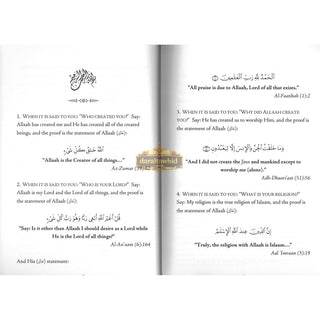 1. WHEN IT IS SAID TO YOU: "WHO CREATED YOU?" Say:
Allaah has created me and He has created all of the created
beings, and the proof is the statement of Allaah (ﷻ):
اللَّهُ خَالِقُ كُلِّ شَيْءٍ
"Allaah is the Creator of all things…."
Az-Zumar (39):62
2. WHEN IT IS SAID TO YOU: "WHO IS YOUR LORD?" Say:
Allaah is my Lord and the Lord of all things, and the proof is
the statement of Allaah (ﷻ):
قُلْ أَغَيْرَ اللَّهِ أَبْغِي رَبًّا وَهُوَ رَبُّ كُلِّ شَيْءٍ
"Say: Is it other than Allaah I should desire as a Lord while
He is the Lord of all things?"
Al-An'aam (6):164
And His (ﷻ) statement:
الْحَمْدُ لِلَّهِ رَبِّ الْعَالَمِينَ
"All praise is due to Allaah, Lord of all that exists."
Al-Faatihah (1):2
3. WHEN IT IS SAID TO YOU: "WHY DID ALLAAH CREATE
YOU?" Say: He has created us to worship Him, and the proof is
the statement of Allaah (ﷻ):
وَمَا خَلَقْتُ الْجِنَّ وَالْإِنسَ إِلَّا لِيَعْبُدُونِ
"And I did not create the Jinn and mankind except to
worship me (alone)."
Adh-Dhaari'aat (51):56
4. WHEN IT IS SAID TO YOU: "WHAT IS YOUR RELIGION?"
Say: My religion is the true religion of Islaam, and the proof is
the statement of Allaah (ﷻ):
إِنَّ الدِّينَ عِندَ اللَّهِ الْإِسْلَامُ
"Truly, the religion with Allaah is Islaam…."
Aal 'Imraan (3):19
daraltawhid